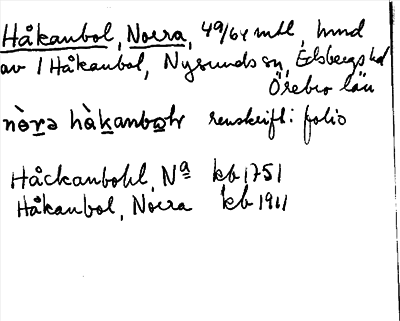 Håkanbol, Norra, 49/64 mtl, hmd
av 1 Håkanbol, Nysunds sn, Edsbergs hd
Örebro län
nòrə hàkanbolr renskrift i folio
Håckanbohl, Nª kb 1751
Håkanbol, Norra kb 1911